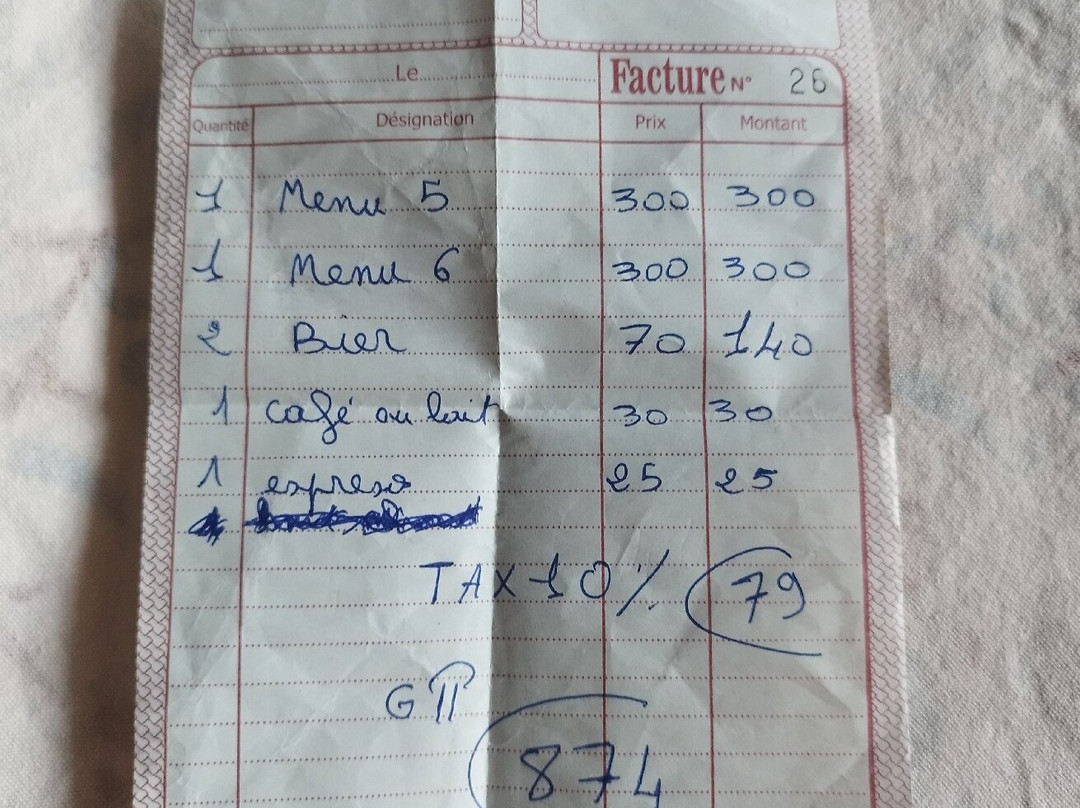 Le Facture N° 26
Quantité Désignation Prix Montant
1 Menu 5 300 300
1 Menu 6 300 300
2 Bier 70 140
1 café au lait 30 30
1 espreso 25 25
TAX 10% 79
874